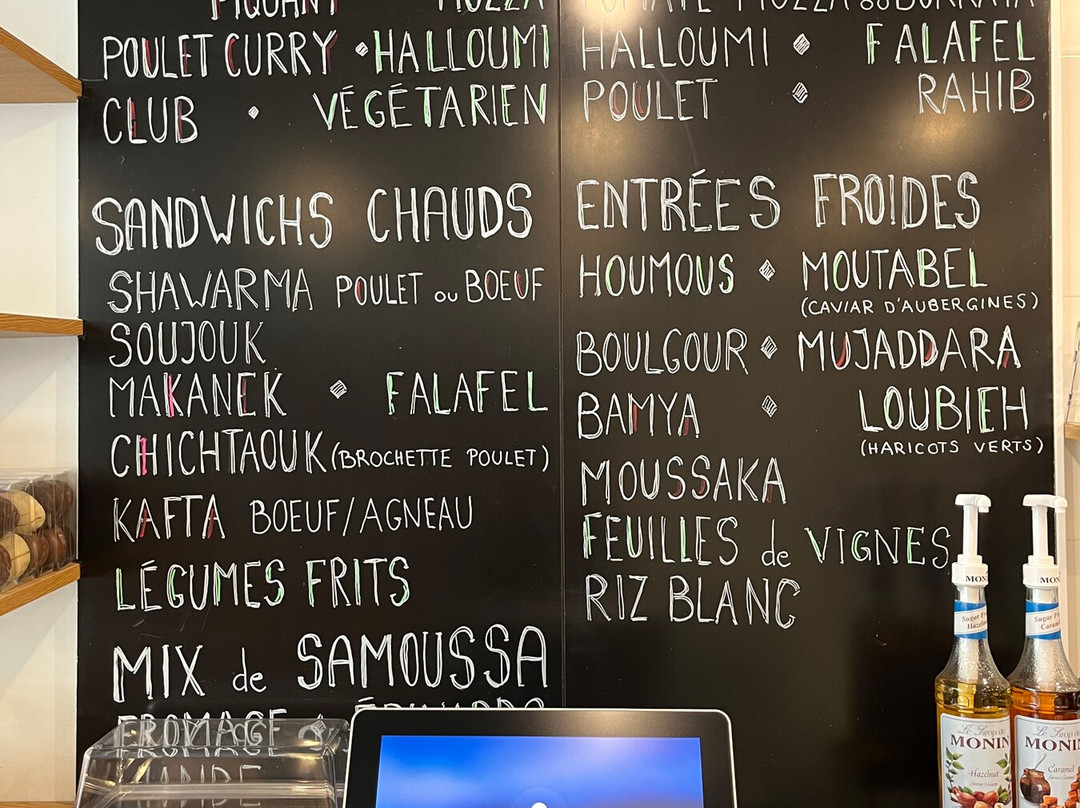 PIQUANT MOZZA
POULET CURRY HALLOUMI
CLUB VÉGÉTARIEN
SANDWICHS CHAUDS
SHAWARMA POULET ou BOEUF
SOUJOUK
MAKANEK FALAFEL
CHICHTAOUK (BROCHETTE POULET)
KAFTA BOEUF/AGNEAU
LÉGUMES FRITS
MIX de SAMOUSSA
FROMAGE ÉPINARDS
TOMATE MOZZA ou BURRATA
HALLOUMI FALAFEL
POULET RAHIB
ENTRÉES FROIDES
HOUMOUS MOUTABEL
(CAVIAR D'AUBERGINES)
BOULGOUR MUJADDARA
BAMYA LOUBIEH
(HARICOTS VERTS)
MOUSSAKA
FEUILLES de VIGNES
RIZ BLANC
MONIN
Sugar Free
Hazelnut
Le Sirop de
MONIN
Hazelnut
MONIN
Sugar Free
Caramel
Le Sirop de
MONIN
Caramel